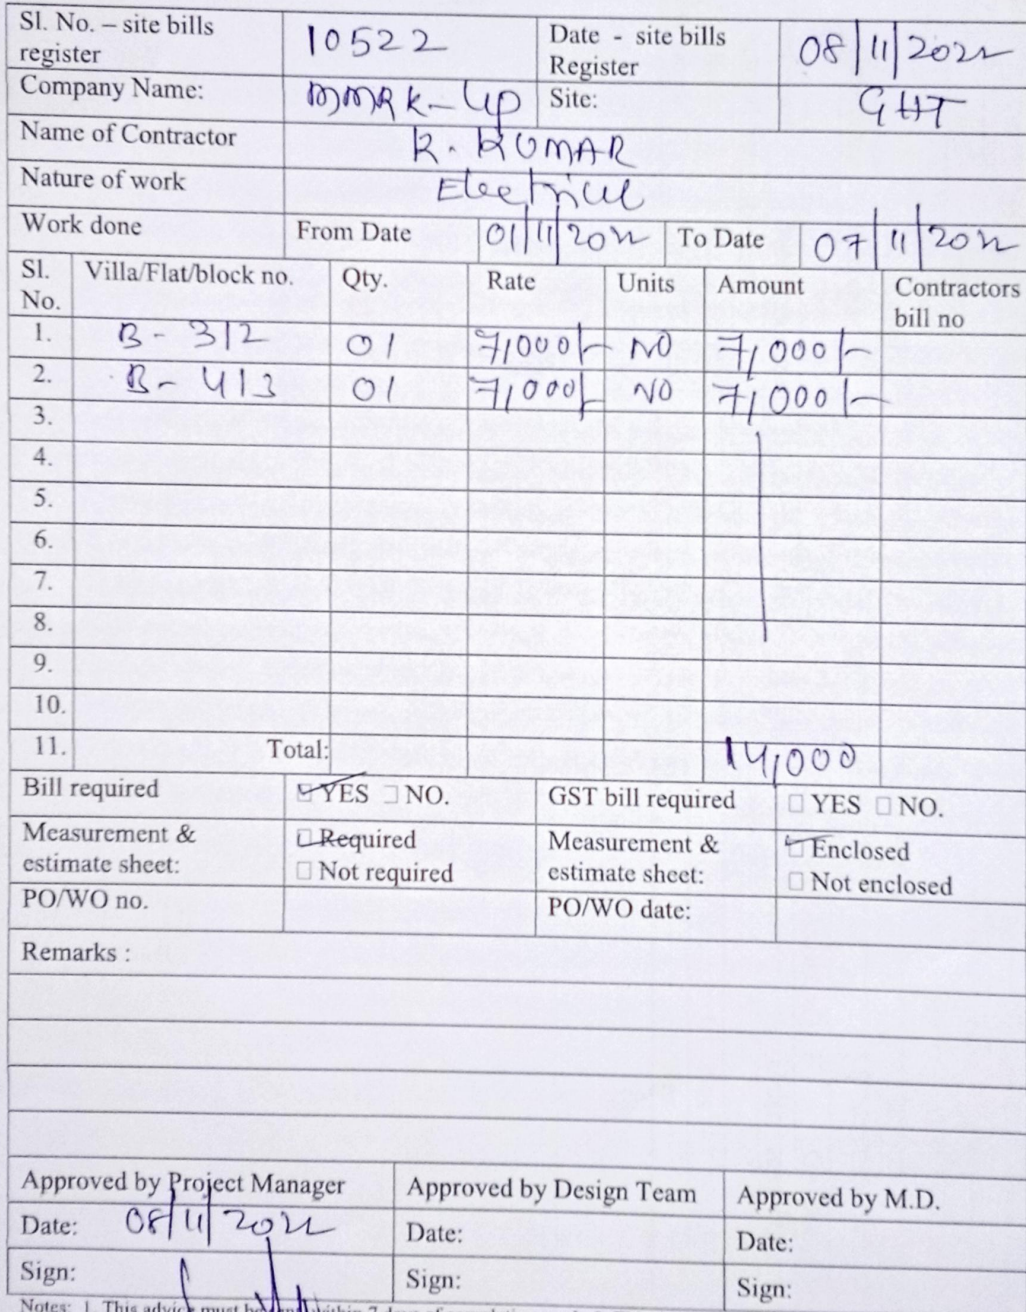 Sl. No. – site bills register 10522 Date - site bills Register 08/11/2022
Company Name: MMRK-LLP Site: GHT
Name of Contractor K. KUMAR
Nature of work Electrical
Work done From Date 01/11/2022 To Date 07/11/2022
Sl. No. Villa/Flat/block no. Qty. Rate Units Amount Contractors bill no
1. B-312 01 7,000/- NO 7,000/-
2. B-413 01 7,000/- NO 7,000/-
3.
4.
5.
6.
7.
8.
9.
10.
11. Total: 14,000
Bill required ☑ YES ☐ NO. GST bill required ☐ YES ☐ NO.
Measurement & estimate sheet: ☑ Required ☐ Not required Measurement & estimate sheet: ☑ Enclosed ☐ Not enclosed
PO/WO no. PO/WO date:
Remarks :
Approved by Project Manager Approved by Design Team Approved by M.D.
Date: 08/11/2022 Date: Date:
Sign: Sign: Sign:
Notes: 1. This advice must be